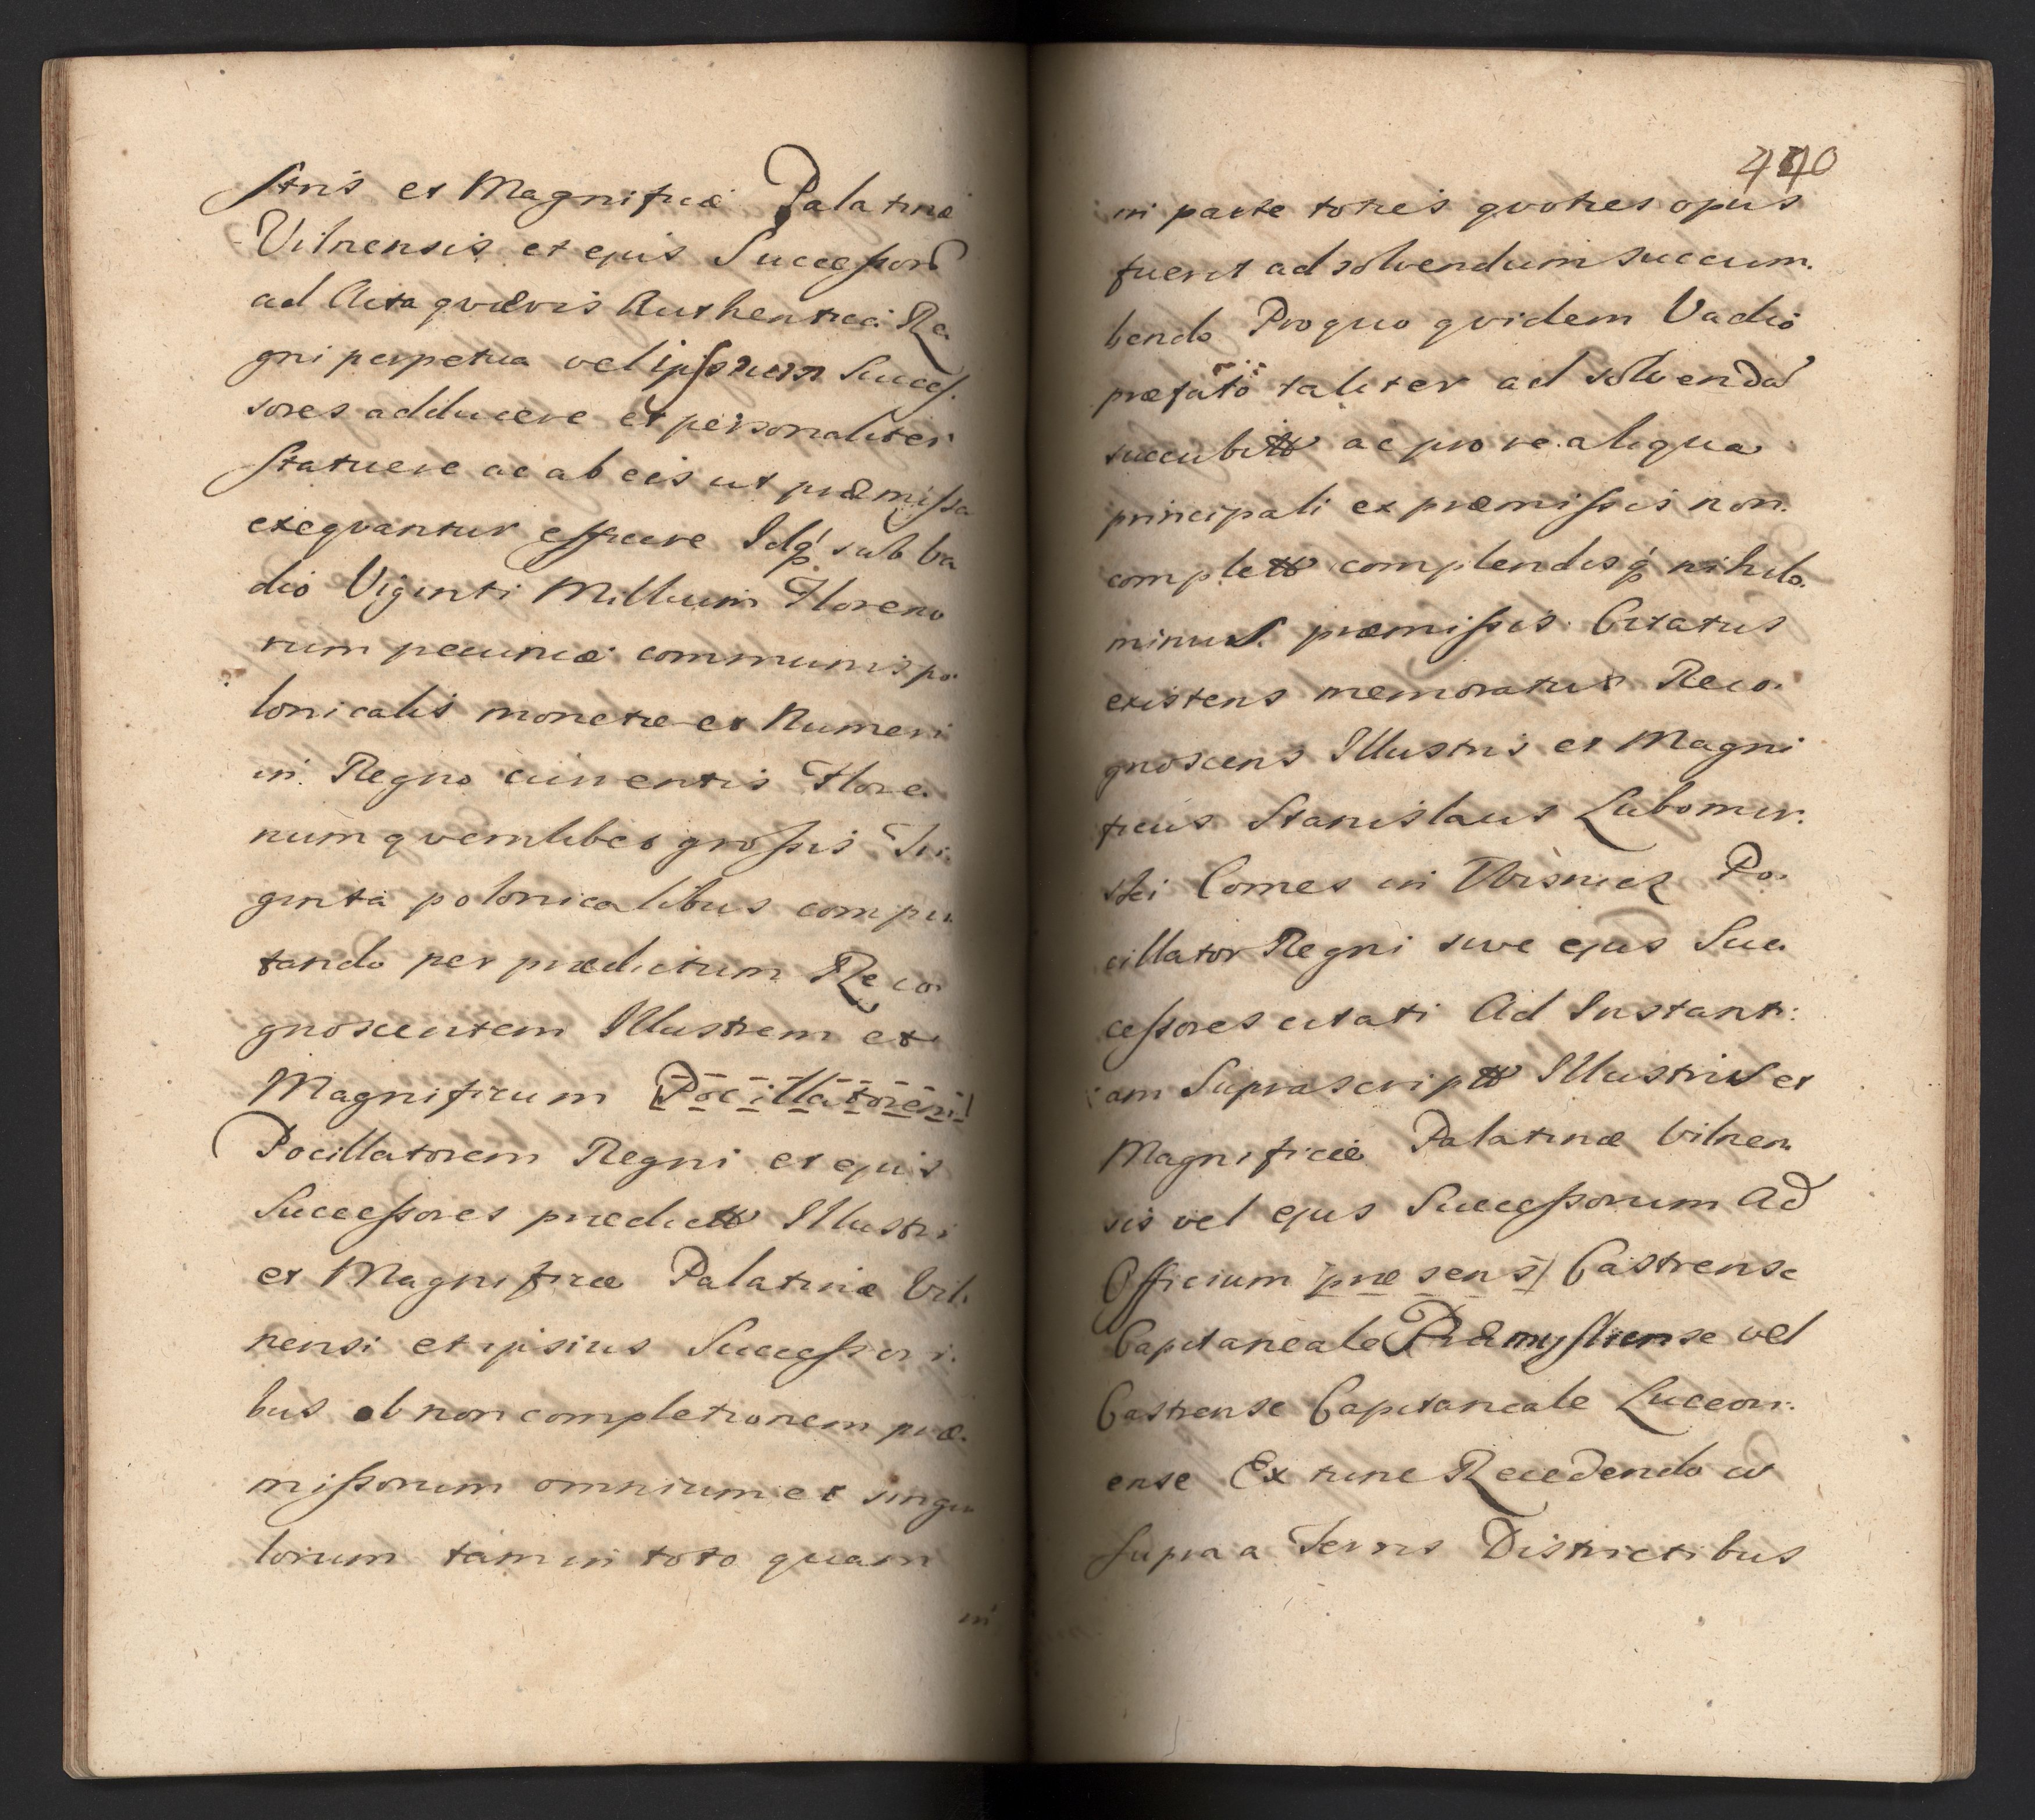 stris et Magnificæ Palatinæ
Vilnensis et ejus Successorū
ad Acta qvævis Authentica Re
gni perpetua vel ipsorum Succes.
sores adducere et personaliter
statuere ac ab eis ut præmissa
exeqvantur efficere Idq́ sub va
dio Viginti Millium Floreno
rum pecuniæ communis po
lonicalis monetæ et Numeri
in Regno currentis Flore
num qvemlibet grossis Tri
ginta polonicalibus compu
tando per prædictum Reco
gnoscentem Illustrem et
Magnificum Pocillatorem
Pocillatorem Regni et ejus
Successores prædictæ Illustri
et Magnificæ Palatinæ Vil
nensi et ipsius Successori
bus ob non completionem præ.
missorum omnium et singu
lorum tam in toto quam
in
440
in parte toties qvoties opus
fuerit ad solvendum succum.
bendo Pro quo qvidem Vadio
præfato taliter ad solvendū
succubitt ac pro re aliqua
principali ex præmissis non
complett complendisq́ nihilo
minus præmissis Citatus
existens memoratus Reco
gnoscens Illustris et Magni
ficus Stanislaus Lubomir.
ski Comes in Wisnicz Po
cillator Regni sive ejus Suc
cessores citati Ad Instanti:
am Suprascriptt Illustris et
Magnificæ Palatinæ Vilnen
sis vel ejus Successorum Ad
Officium præsens Castrense
Capitaneale Præmysliense vel
Castrense Capitaneale Luceori.
ense Ex tunc Recedendo ut
supra a Terris Districtibus